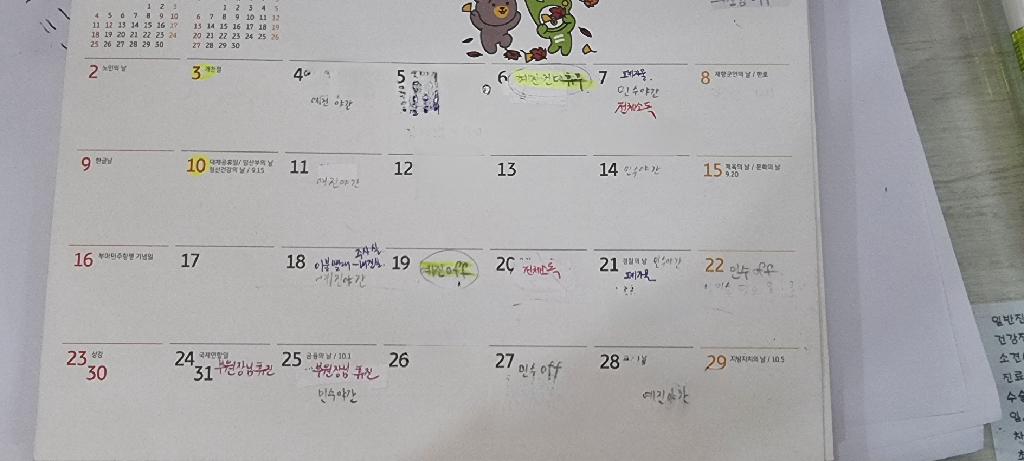 1 2 3
4 5 6 7 8 9 10
11 12 13 14 15 16 17
18 19 20 21 22 23 24
25 26 27 28 29 30
1 2 3 4 5
6 7 8 9 10 11 12
13 14 15 16 17 18 19
20 21 22 23 24 25 26
27 28 29 30
2 노인의 날
3 개천절
4
예진 야간
5
6
7
민수야간
전체소독
8 재향군인의 날 / 한로
9 한글날
10 대체공휴일/ 임산부의 날
정신건강의 날 / 9.15
11
예진야간
12
13
14 민수야간
15 체육의 날 / 문화의 날
9.20
16 부마민주항쟁 기념일
17
18
예진야간
19 예진 off
20 전체소독
21 경찰의 날 민수야간
22 민수 off
23 상강
30
24 국제연합일
31 부원장님 휴진
25 금융의 날 / 10.1
부원장님 휴진
민수야간
26
27 민수 off
28
예진야간
29 지방자치의 날 / 10.5
일반진
건강
소견
진료
수술